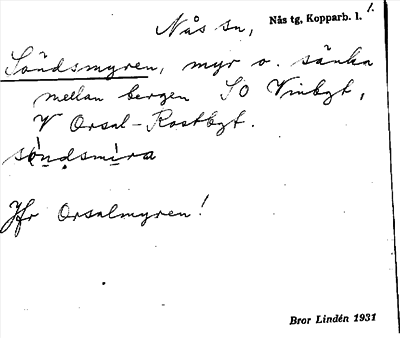 Nås sn, Nås tg, Kopparb. l. 1.
Söndsmyren, myr o. sänka
mellan bergen SO Vinbgt,
V Orsal-Rostbgt.
söndsmira
Jfr Orsalmyren!
Bror Lindén 1931